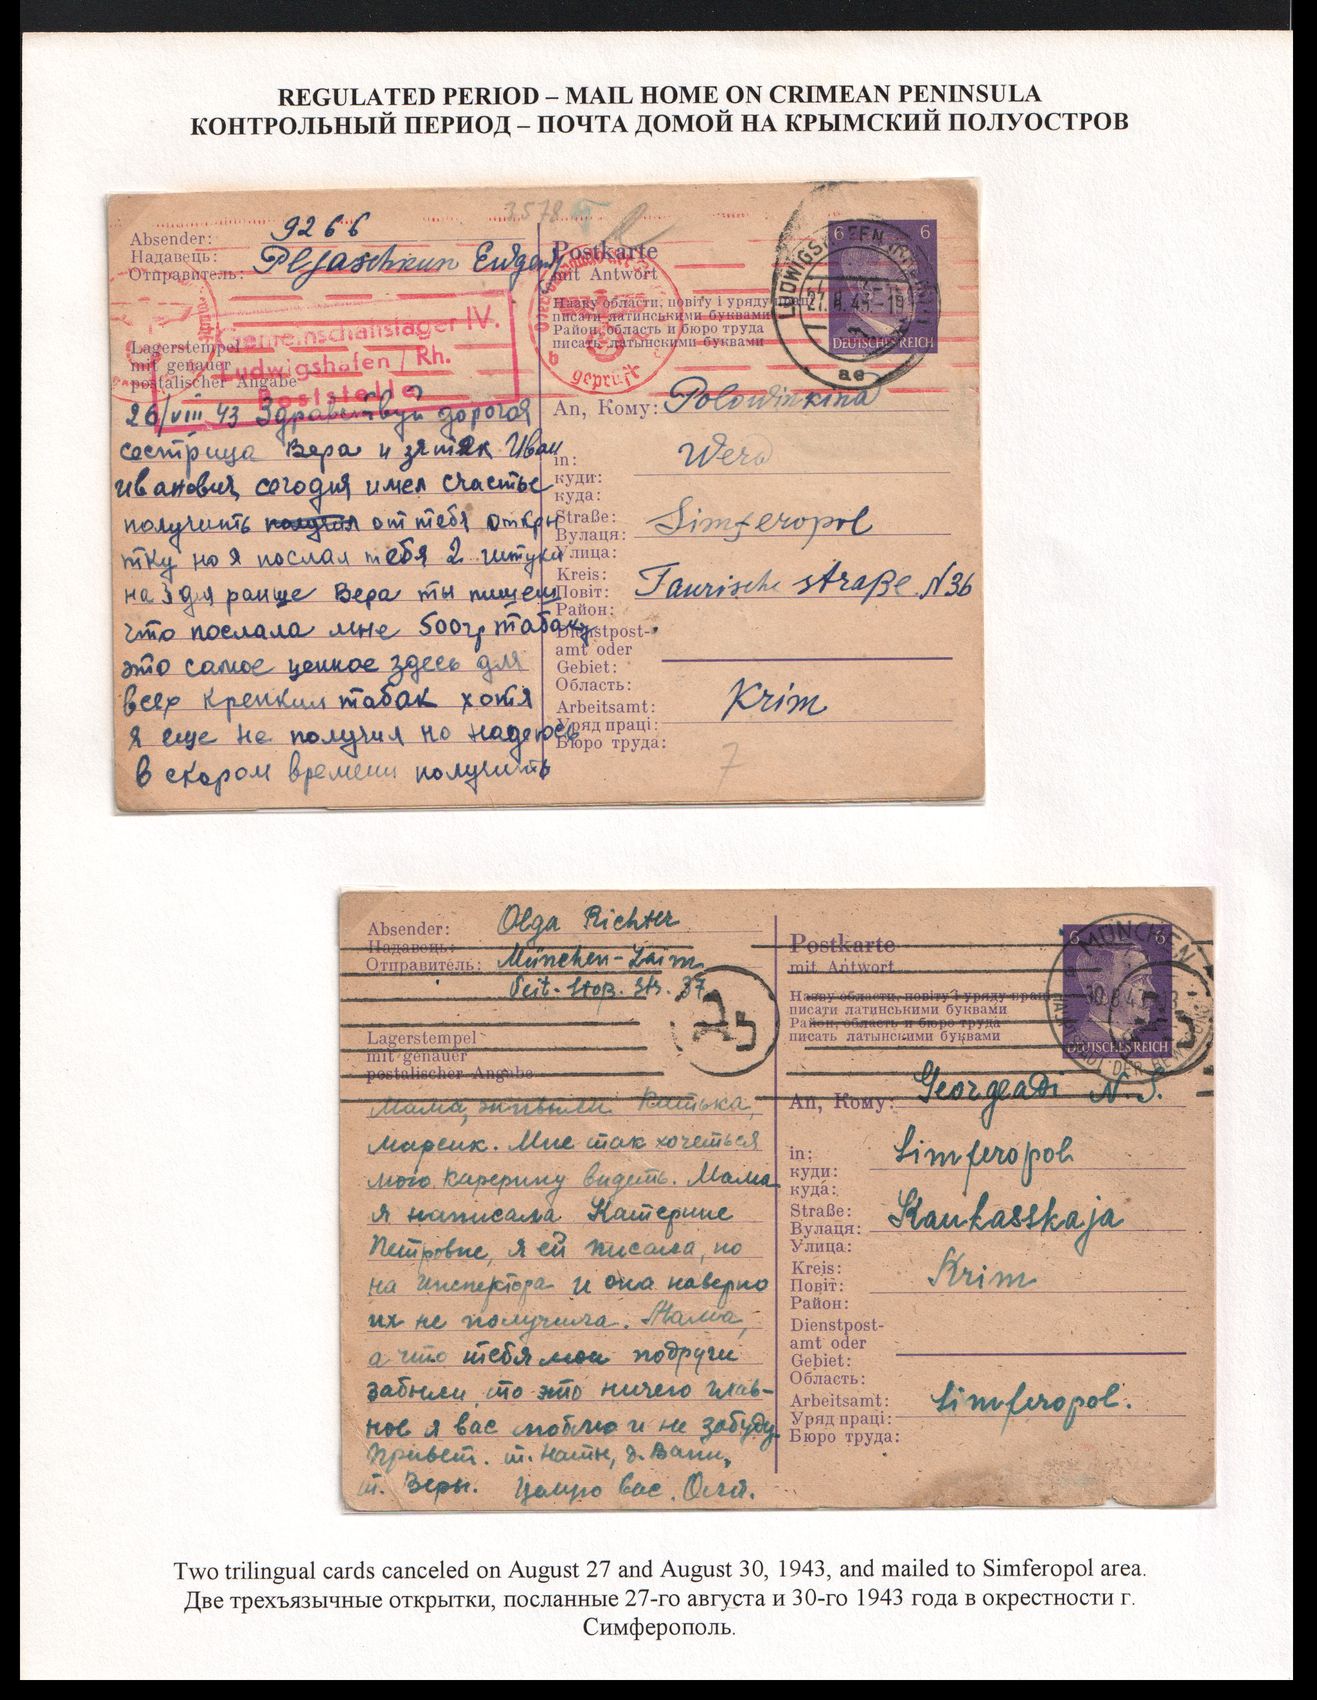 REGULATED PERIOD – MAIL HOME ON CRIMEAN PENINSULA
КОНТРОЛЬНЫЙ ПЕРИОД – ПОЧТА ДОМОЙ НА КРЫМСКИЙ ПОЛУОСТРОВ
3578
Absender: 9266
Надавець:
Отправитель: Pljaschkun Edgar
Gemeinschaftslager IV.
Ludwigshafen / Rh.
Poststelle
Lagerstempel
mit genauer
postalischer Angabe
26/VIII 43 Здравствуй дорогая
сестрица Вера и зятек Иван
Иванович, сегодня имел счастье
получить от тебя откры
тку но я послал тебя 2 штуки
на 3 дня раньше Вера ты пишеш
что послала мне 500гр табаку
это самое ценное здесь для
всех крепкий табак хотя
я еще не получил но надеюсь
в скором времени получить
Postkarte
mit Antwort
Назву области, повіту і уряду праці
писати латинськими буквами
Район, область и бюро труда
писать латынскими буквами
b geprüft c
LUDWIGSHAFEN
27.8.43.-19
ae
6 6
DEUTSCHES REICH
An, Кому: Polowinkina
in: Wera
куди:
куда:
Straße: Simferopol
Вулаця:
Улица:
Kreis: Taurische straße N36
Повіт:
Район:
Dienstpost-
amt oder
Gebiet:
Область:
Arbeitsamt: Krim
Уряд праці:
Бюро труда:
7
Absender: Olga Richter
Надавець:
Отправитель: München-Laim
Veit-Stoß. Str. 37
Lagerstempel
mit genauer
postalischer Angabe
Мама, Катька,
Марсик. Мне так хочеться
мою Каперину видеть. Мама
я написала Катерине
Петровне, я ей писала, но
на инспектора и она наверно
их не получила. Мама,
а что тебя мои подруги
забыли, то это ничего глав-
ное я вас люблю и не забуду.
Привет. т. Нате, д. Ване,
т. Веры. Целую вас. Оля.
Postkarte
mit Antwort
Назву области, повіту і уряду праці
писати латинськими буквами
Район, область и бюро труда
писать латынскими буквами
MÜNCHEN
30.8.43
HAUPTSTADT DER BEWEGUNG
6 6
DEUTSCHES REICH
An, Кому: Georgeadi N.
in: Simferopol
куди:
куда:
Straße: Kaukasskaja
Вулаця:
Улица:
Kreis: Krim
Повіт:
Район:
Dienstpost-
amt oder
Gebiet:
Область:
Arbeitsamt: Simferopol.
Уряд праці:
Бюро труда:
Two trilingual cards canceled on August 27 and August 30, 1943, and mailed to Simferopol area.
Две трехъязычные открытки, посланные 27-го августа и 30-го 1943 года в окрестности г.
Симферополь.